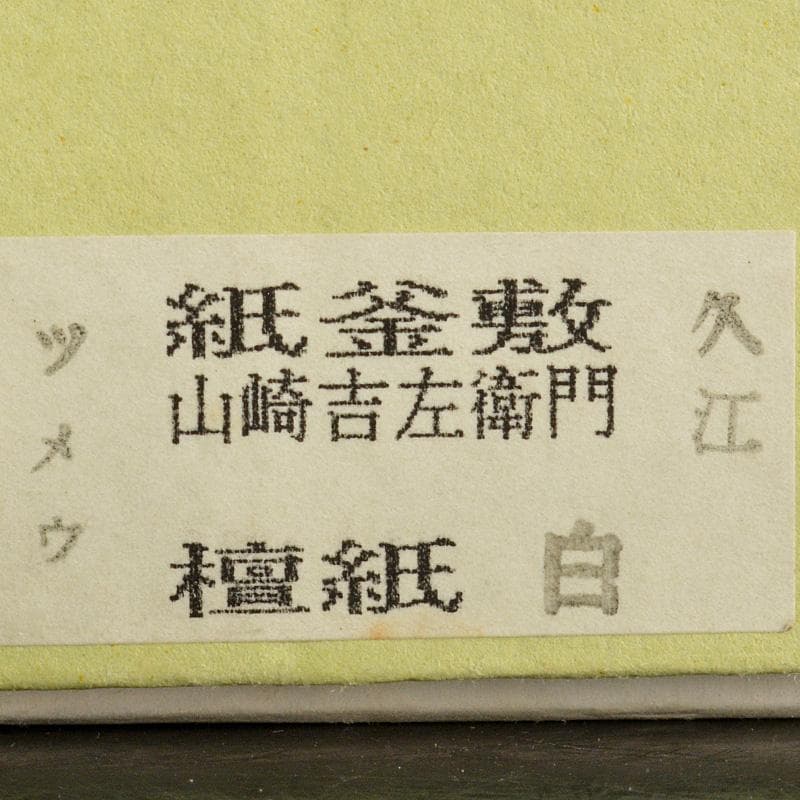 紙釜敷
山崎吉左衛門
檀紙 白
久江
ツメウ